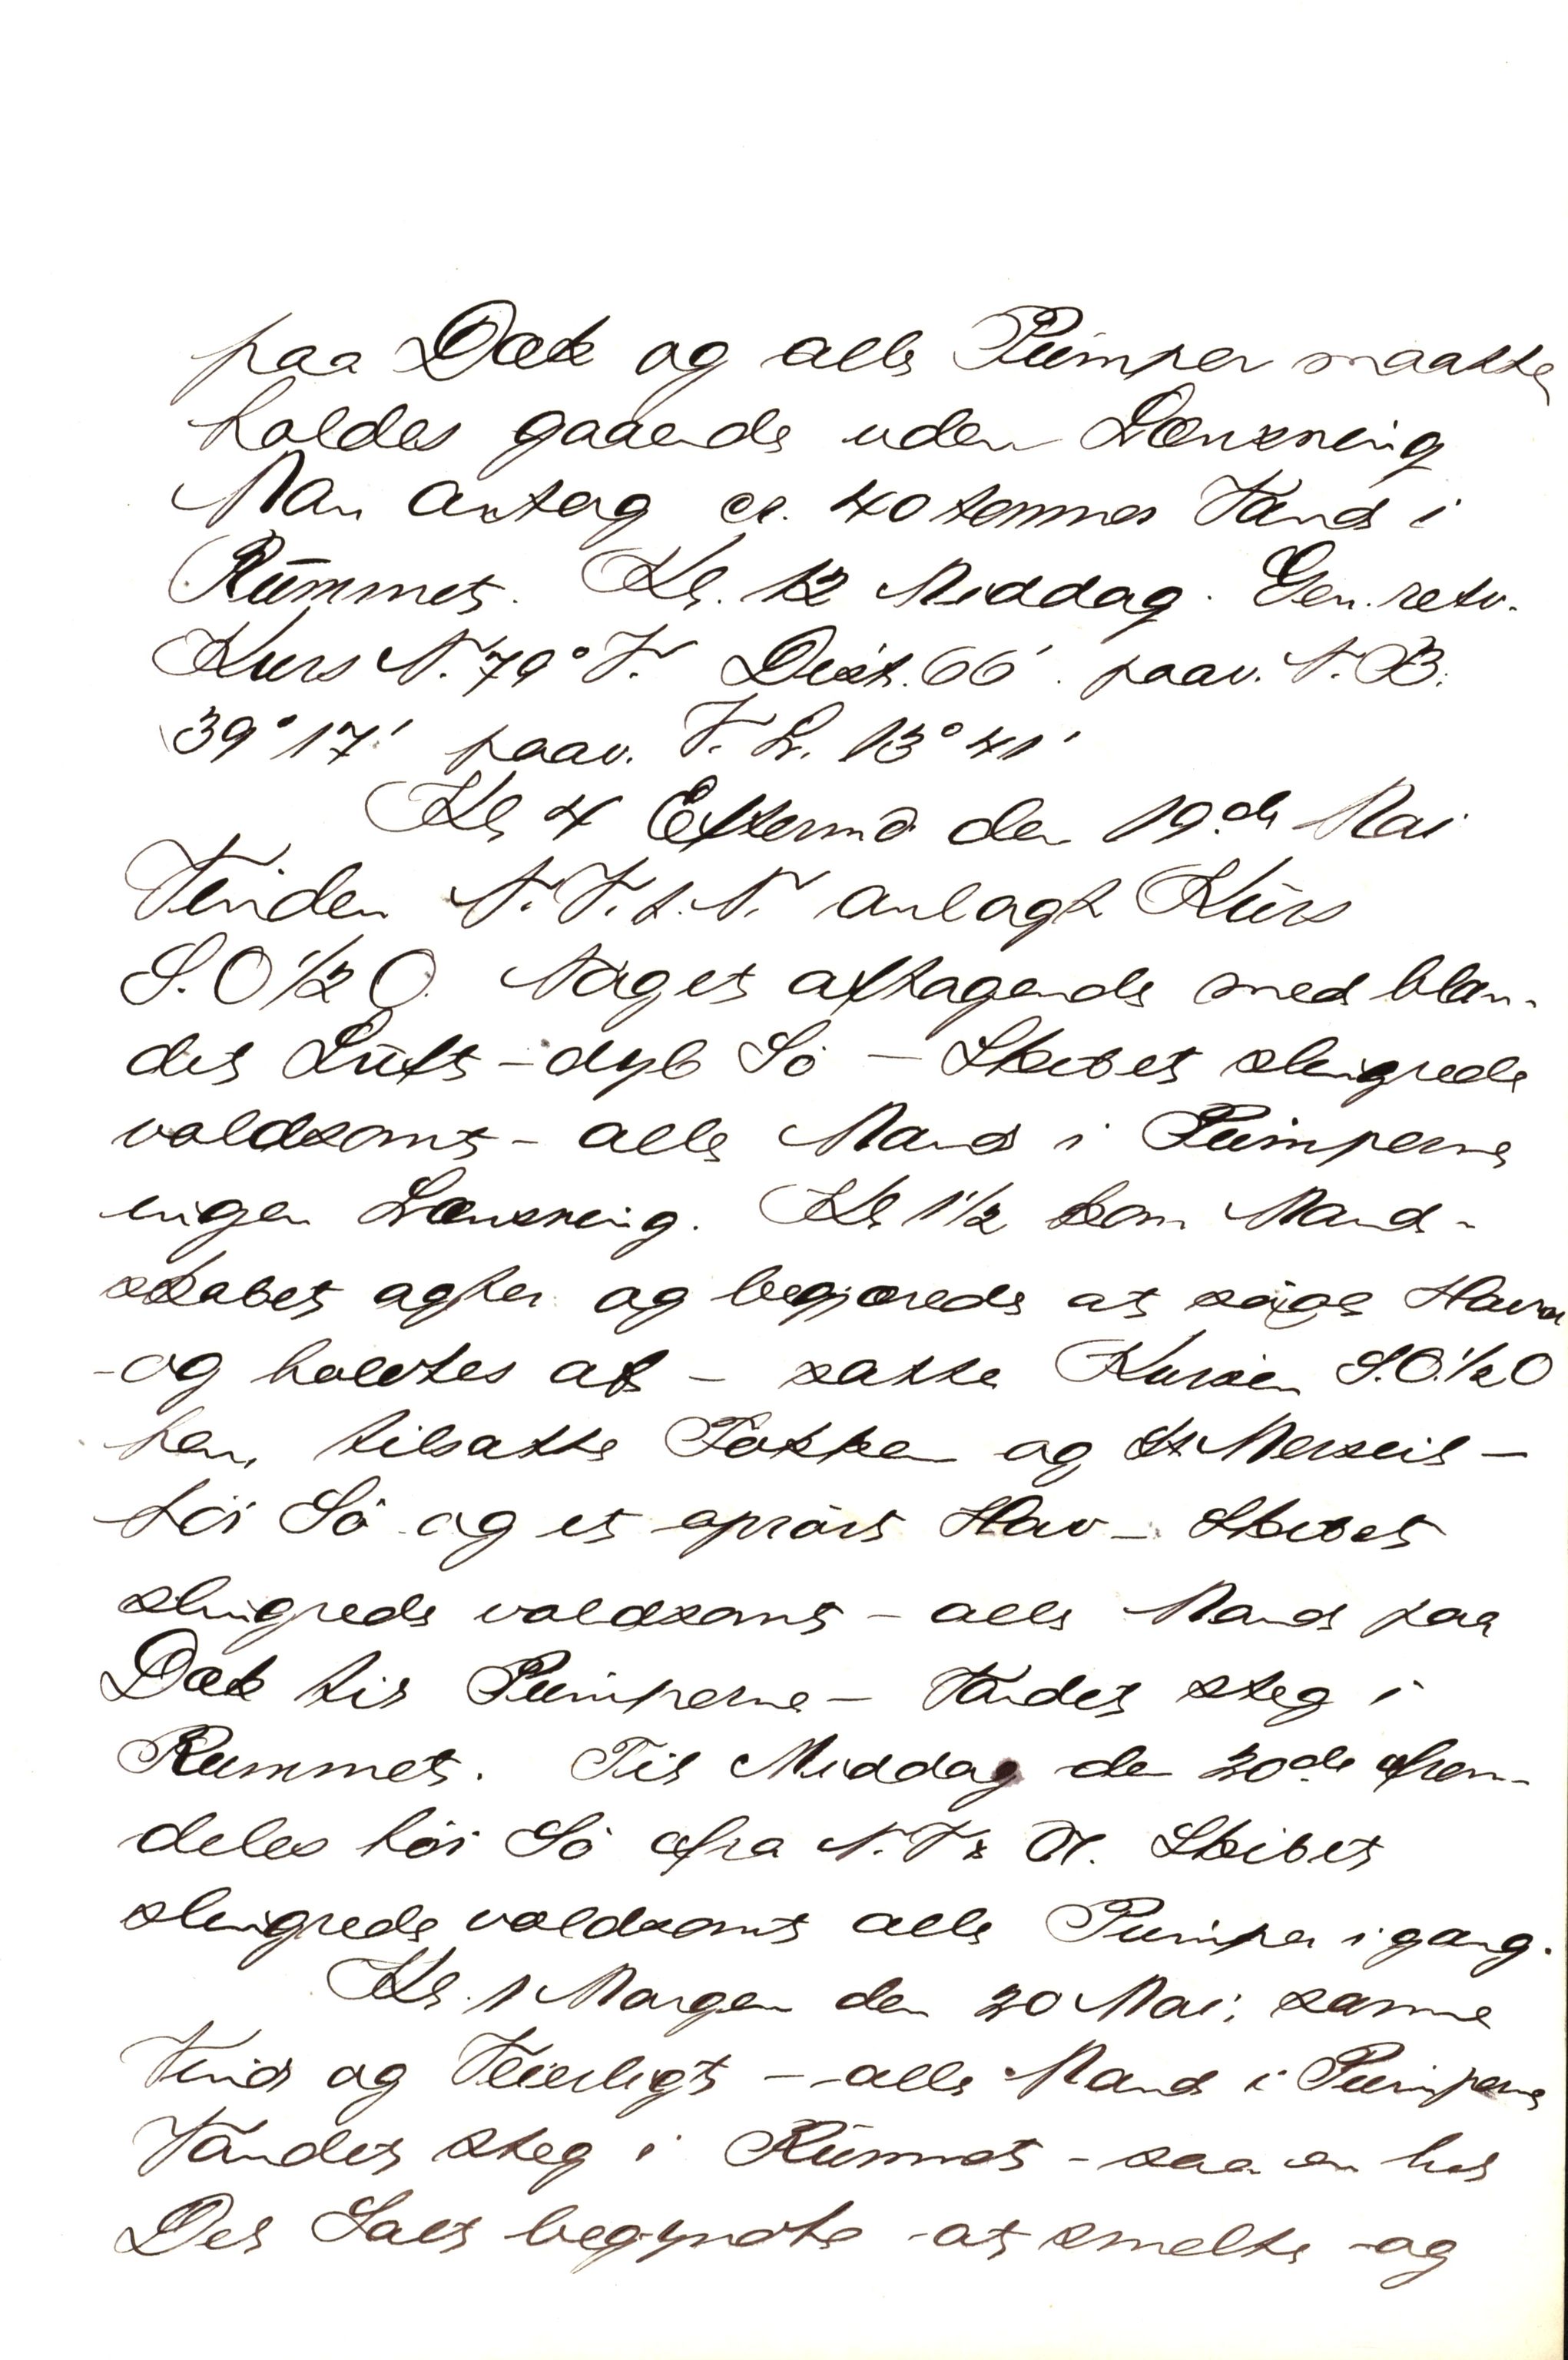 paa Dæk og alle Pumper maatte
holdes gaaende uden Lænsning
Man antog ca. 40 tommer Vand i
Rummet. Kl. 12 Middag. Gen. retv.
Kurs N. 79° V. Dist. 66' paav. N. B.
39° 17' paav. V. L. 13° 41'
Kl 4 Efterm. den 19de Mai
Vinden N. V. t. N. anlagt Kurs
S. O ½ O. Noget aftagende med blan-
det Luft - dyb Sö - Skibet slingrede
voldsomt - alle Mand i Pumperne
ingen Lænsning. Kl 1½ kom Mand-
skabet agter og begjærede at söge Havn
- og holdtes af - satte Kursen S.O. ½ O
hen, tilsatte Fokken og St Merseil -
höi Sö og et oprört Hav - Skibet
slingrede voldsomt - alle Mand paa
Dæk til Pumperne - Vandet steg i
Rummet. Til Middag den 20de frem-
deles höi Sö fra N. V. Skibet
slingrede voldsomt alle Pumper i gang.
Kl. 1 Morgen den 20 Mai, samme
Vind og Veierligt - - alle Mand i Pumperne
Vandet steg i Rummet - saa en hel
Del Salt begyndte at smelte og